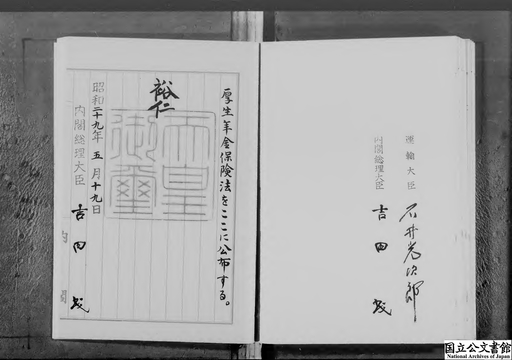 厚生年金保険法をここに公布する。
裕仁
天皇
御璽
昭和二十九年五月十九日
内閣総理大臣
吉田茂
内閣
運輸大臣
石井光次郎
内閣総理大臣
吉田茂
国立公文書館
National Archives of Japan